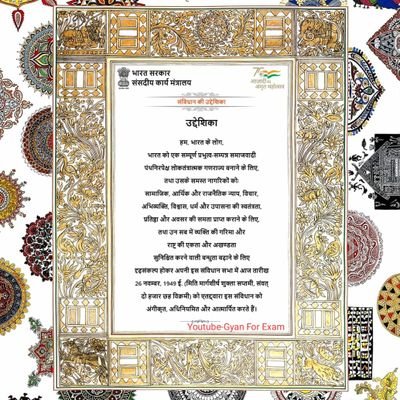 भारत सरकार
संसदीय कार्य मंत्रालय
आज़ादी का
अमृत महोत्सव
संविधान की उद्देशिका
उद्देशिका
हम, भारत के लोग,
भारत को एक सम्पूर्ण प्रभुत्व-सम्पन्न समाजवादी
पंथनिरपेक्ष लोकतंत्रात्मक गणराज्य बनाने के लिए,
तथा उसके समस्त नागरिकों को:
सामाजिक, आर्थिक और राजनैतिक न्याय, विचार,
अभिव्यक्ति, विश्वास, धर्म और उपासना की स्वतंत्रता,
प्रतिष्ठा और अवसर की समता प्राप्त कराने के लिए,
तथा उन सब में व्यक्ति की गरिमा और
राष्ट्र की एकता और अखण्डता
सुनिश्चित करने वाली बन्धुता बढ़ाने के लिए
दृढ़संकल्प होकर अपनी इस संविधान सभा में आज तारीख
26 नवम्बर, 1949 ई. (मिति मार्गशीर्ष शुक्ला सप्तमी, संवत्
दो हजार छह विक्रमी) को एतद्द्वारा इस संविधान को
अंगीकृत, अधिनियमित और आत्मार्पित करते हैं।
Youtube-Gyan For Exam